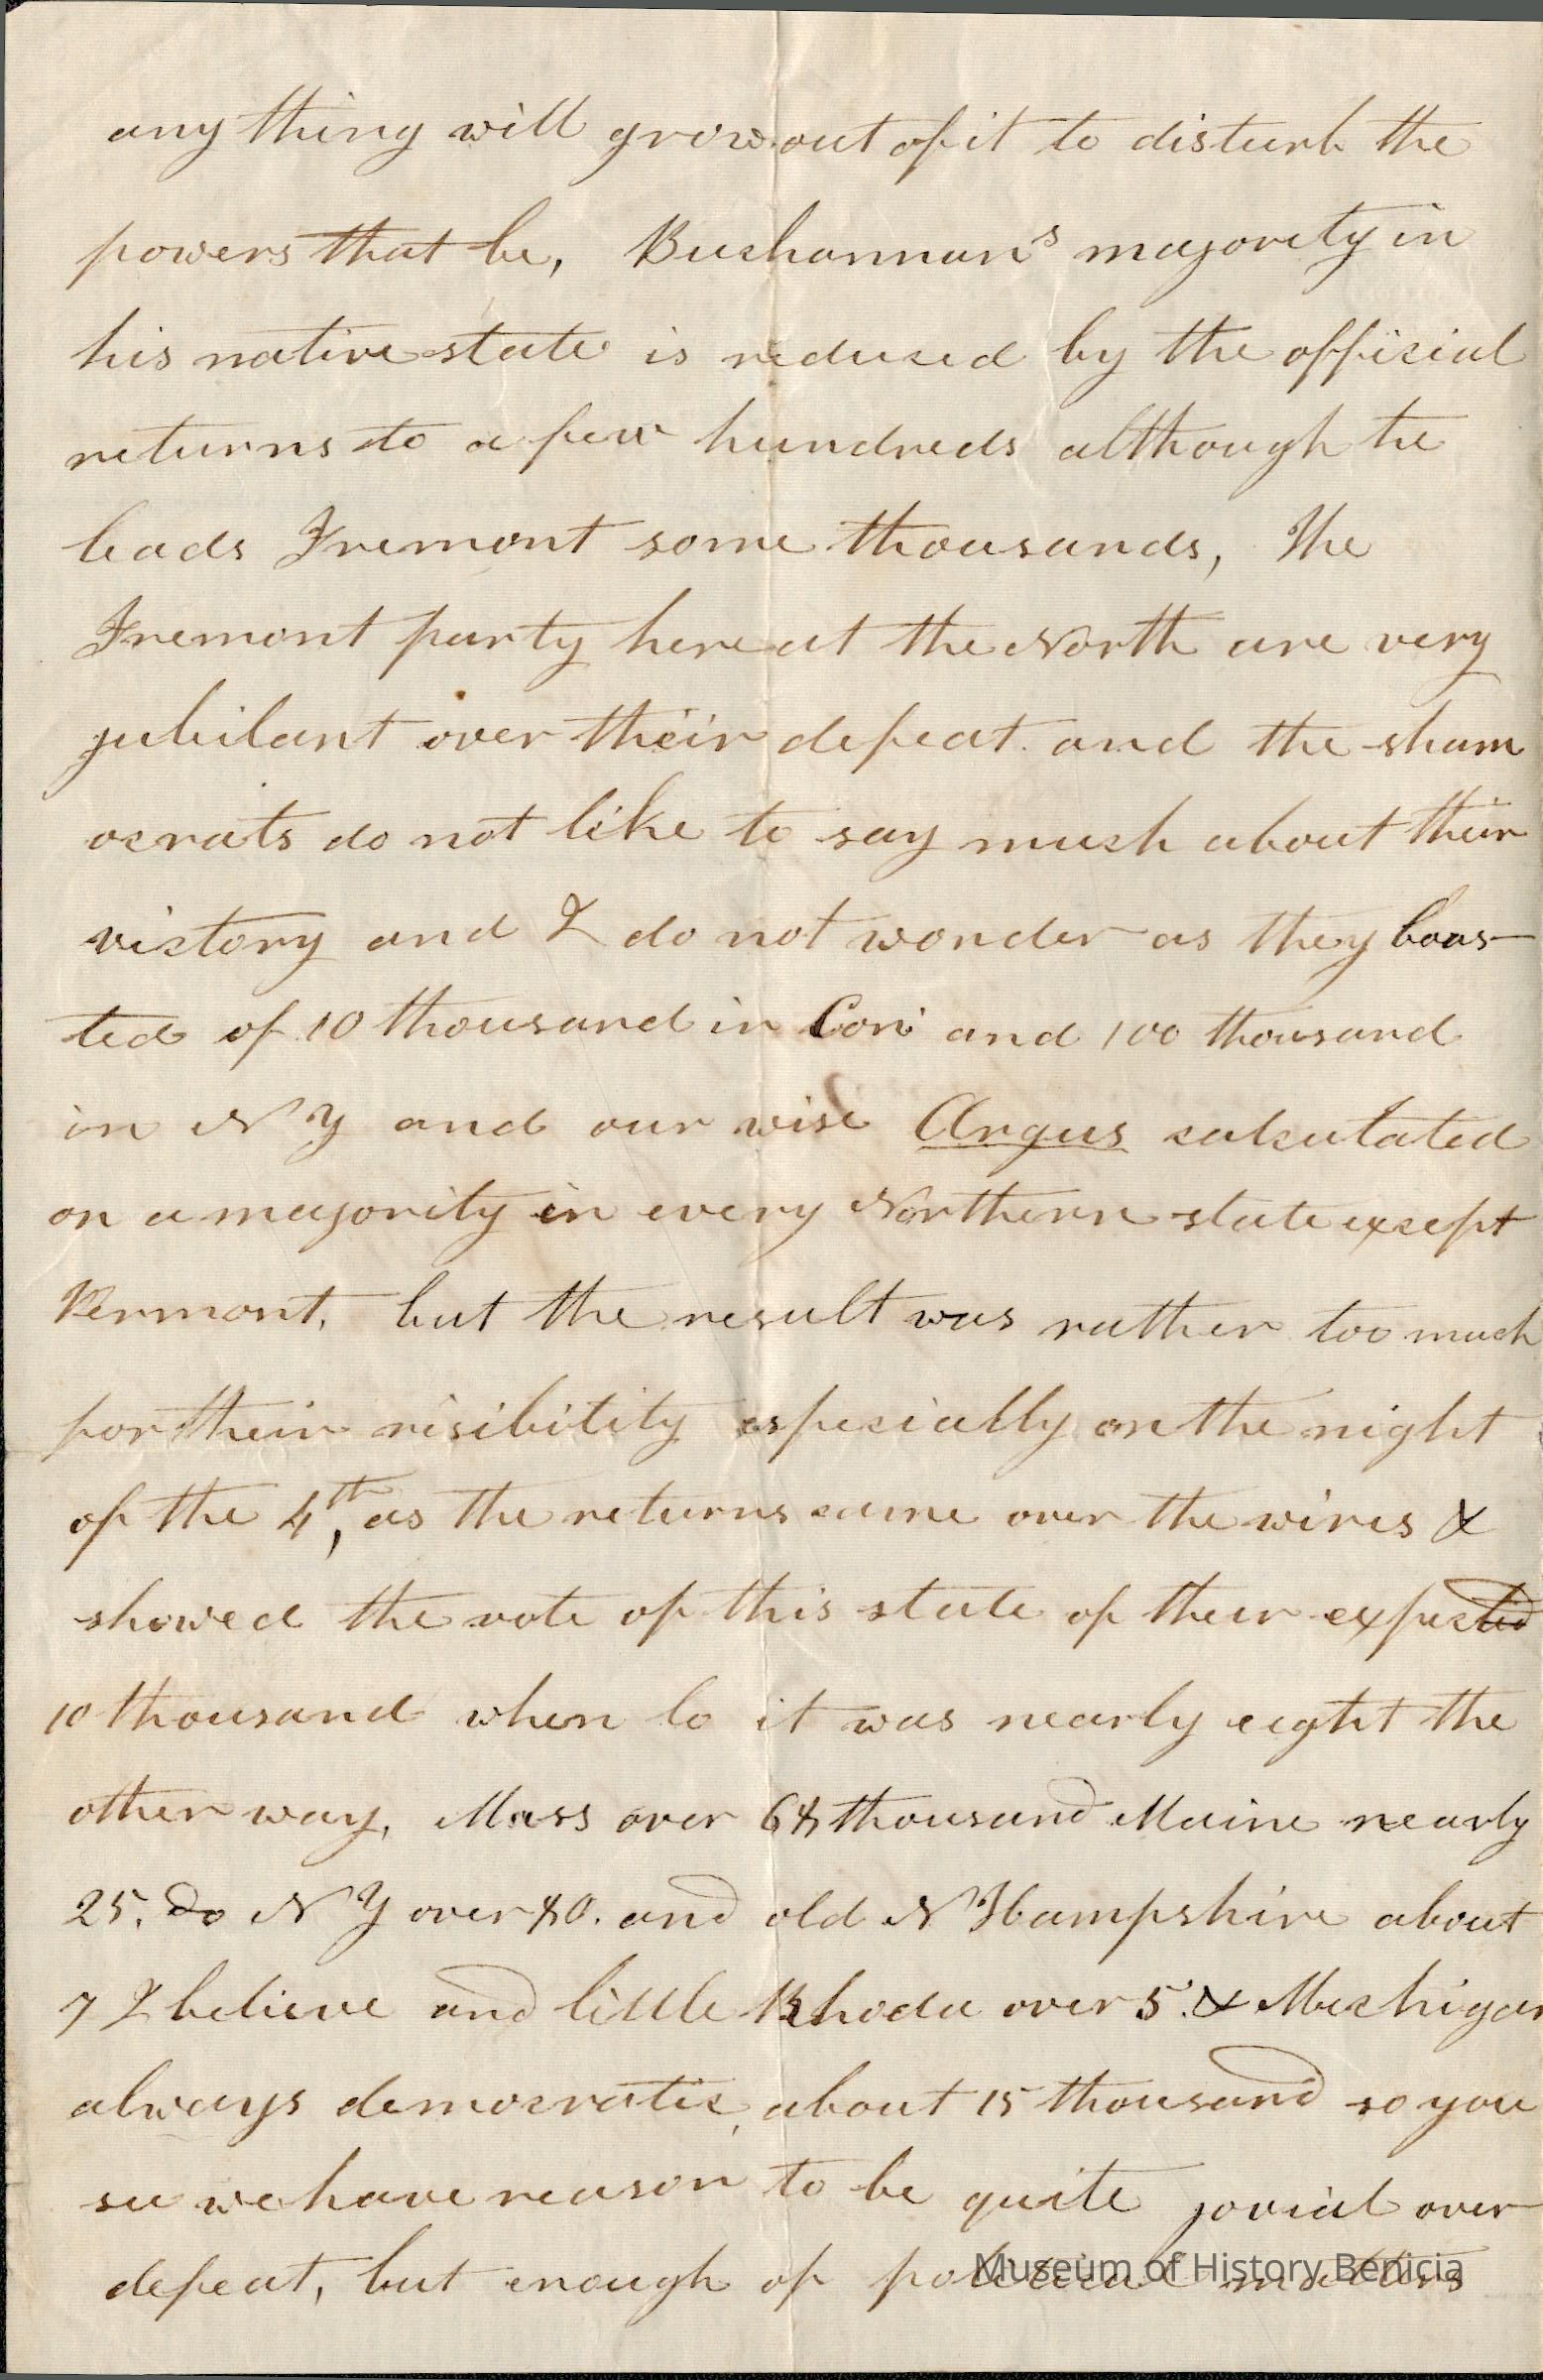 any thing will grow out of it to disturb the
powers that be, Buchannans majority in
his native state is reduced by the official
returns to a few hundreds although he
leads Fremont some thousands, The
Fremont party here at the North are very
jubilant over their defeat. and the sham
ocrats do not like to say much about their
victory and I do not wonder as they boas-
ted of 10 thousand in Con and 100 thousand
in N Y and our wise Argus calculated
on a majority in every Northern state except
Vermont, but the result was rather too much
for their risibility especially on the night
of the 4th, as the returns came over the wires &
showed the vote of this state of their expected
10 thousand when lo it was nearly eight the
other way, Mass over 68 thousand Maine nearly
25. do N Y over 80. and old N Hampshire about
7 I believe and little Rhoda over 5. & Mechigan
always democratic, about 15 thousand so you
see we have reason to be quite jovial over
defeat, but enough of political matters
Museum of History Benicia